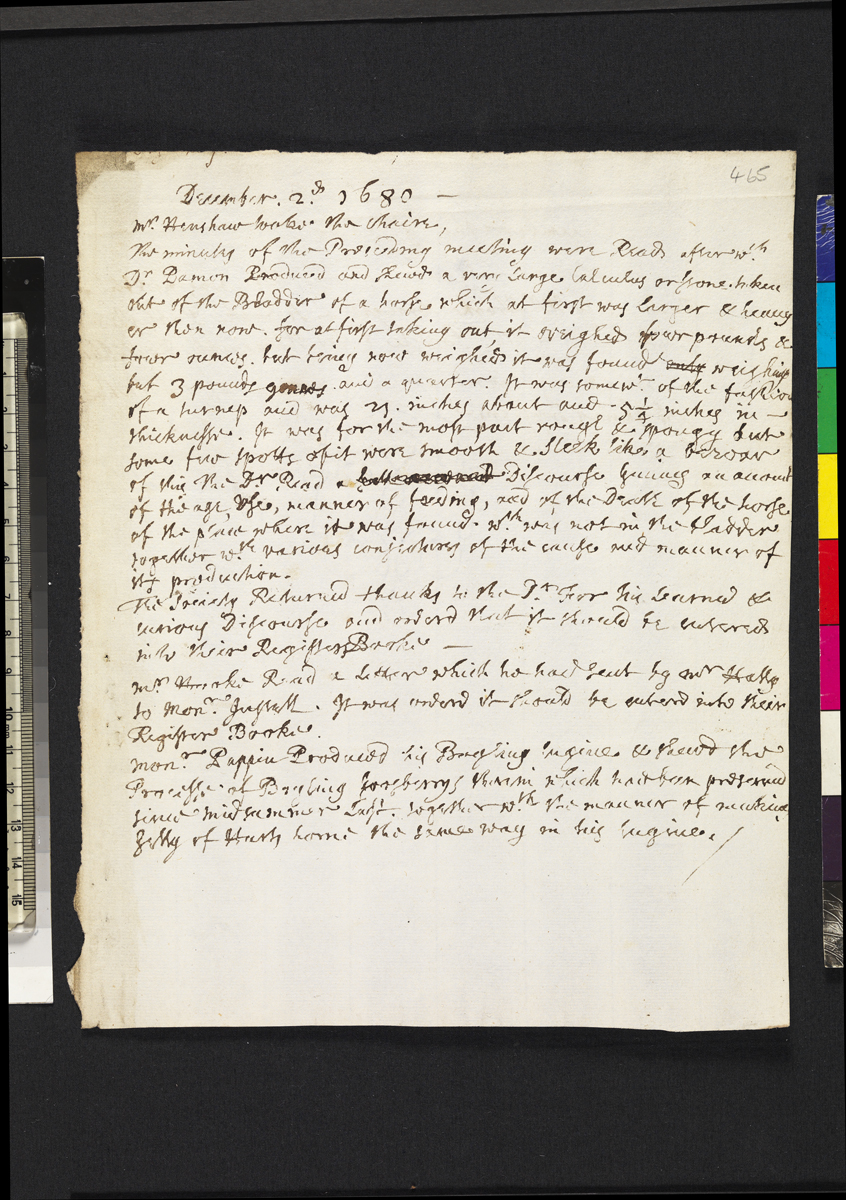 465
December. 2.d 1680 —
Mr. Henshaw tooke the chaire,
the minutes of the Preceding meeting were Read after wch
Dr Damon Produced and shewd a very Large Calculus or stone. taken
out of the Bladder of a horse which at first was larger & heavy
er then now. for at first taking out it weighed fowr pounds &
fowr ounces. but being now weighed it was found only weighing
but 3 pounds and a quarter. It was somewt. of the fashion
of a turnep and was 23. inches about and 5 1/2 inches in —
thicknesse. It was for the most part rough & spongy but
some few spotts of it were smooth & sleek like a bezoar
of this the Dr. Read a Discourse Giuing an account
of the age, Use, manner of feeding, and of the Death of the horse
of the place where it was found. wch was not in the bladder
together wth various coniectures of the cause and manner of
its production.
The Society Returned thanks to the Dr. For his Learned &
curious Discourse and orderd that it should be entered
into their Register Booke —
Mr. Hooke Read a Letter which he had sent by mr Hally
to Monr. Justell. It was orderd it should be enterd into their
Register Booke.
Monr. Pappin Produced his Boyling Engine & shewd the
Processe of Boyling Goosberrys therein which had been preserued
since midsummer Last. together wth the manner of making
Gelly of Harts horne the same way in his Engine. /